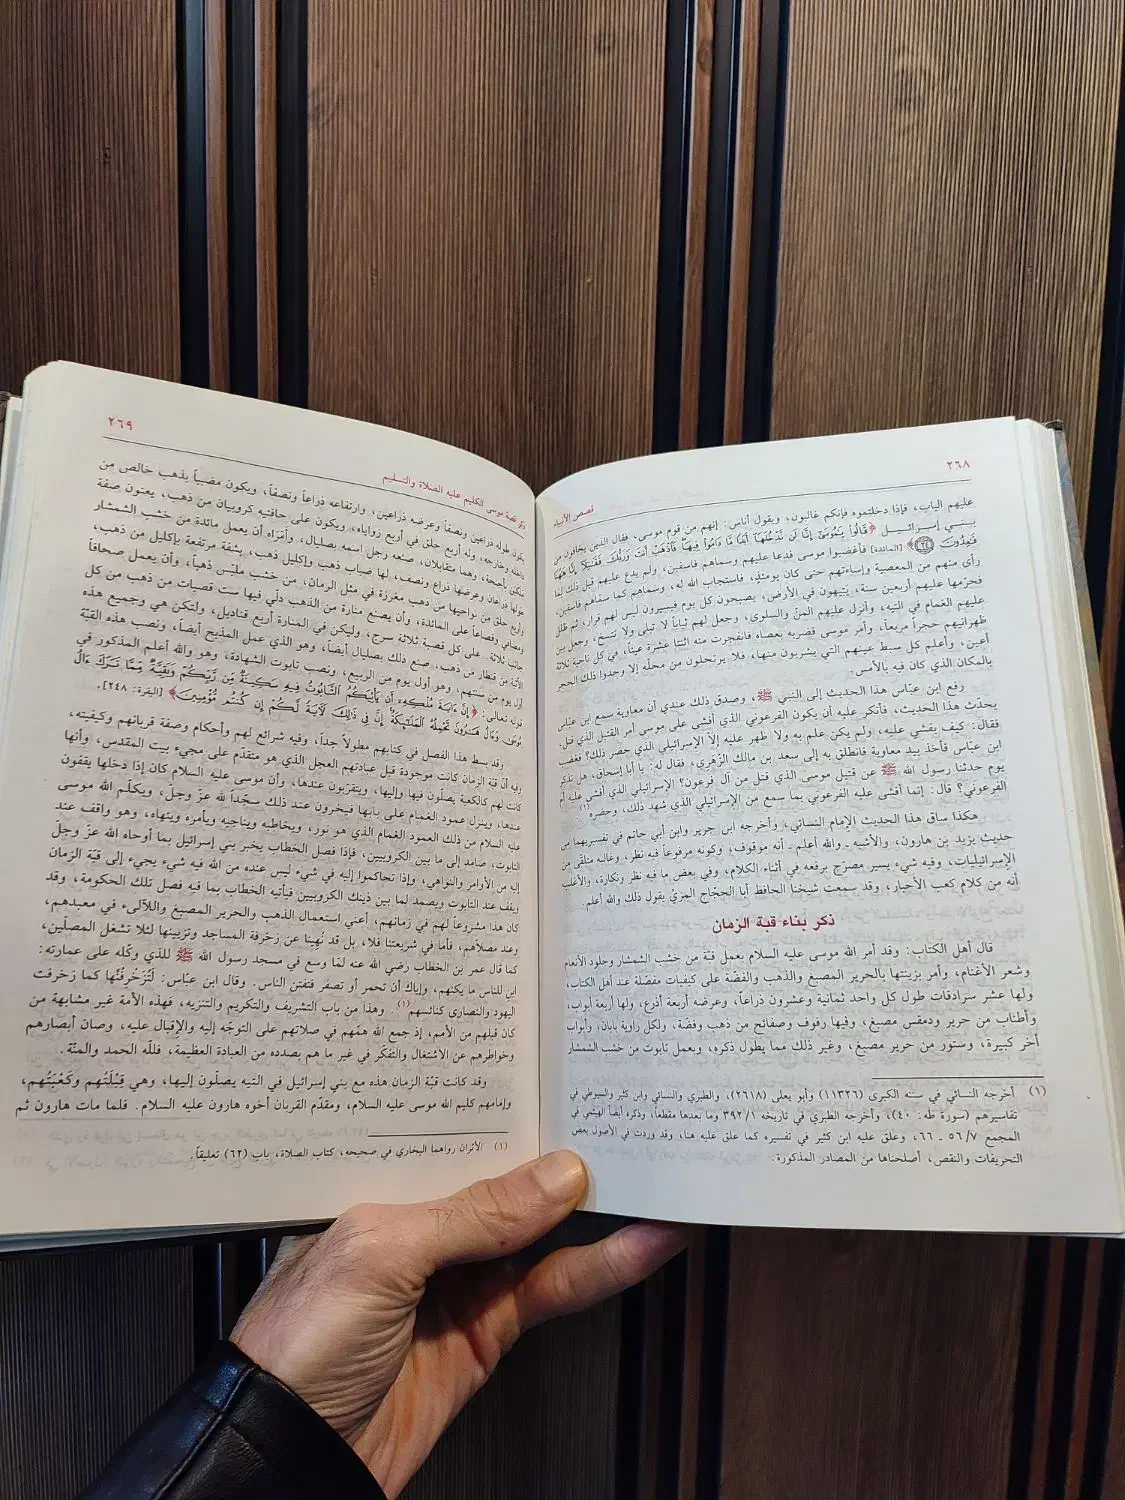 ٢٦٨
قصص الأنبياء
عليهم الباب، فإذا دخلتموه فإنكم غالبون، ويقول أناس: إنهم من قوم موسى، فقال الذين يخافون من
بني إسرائيل ﴿قَالُوا يَمُوسَىٰٓ إِنَّا لَن نَّدْخُلَهَآ أَبَدًا مَّا دَامُوا فِيهَا فَٱذْهَبْ أَنتَ وَرَبُّكَ فَقَٰتِلَآ إِنَّا هَٰهُنَا
قَٰعِدُونَ ٢٤﴾ [المائدة] فأغضبوا موسى فدعا عليهم وسماهم فاسقين، ولم يدع عليهم قبل ذلك لما
رأى منهم من المعصية وإساءتهم حتى كان يومئذٍ، فاستجاب الله له، وسماهم كما سماهم فاسقين،
فحرّمها عليهم أربعين سنة، يتيهون في الأرض، يصبحون كل يوم فيسيرون ليس لهم قرار، ثم ظلل
عليهم الغمام في التيه، وأنزل عليهم المنّ والسلوى، وجعل لهم ثياباً لا تبلى ولا تتسخ، وجعل بين
ظهرانيهم حجراً مربعاً، وأمر موسى فضربه بعصاه فانفجرت منه اثنتا عشرة عيناً، في كل ناحية ثلاثة
أعين، وأعلم كل سبط عينهم التي يشربون منها، فلا يرتحلون من محلّه إلا وجدوا ذلك الحجر
بالمكان الذي كان فيه بالأمس.
رفع ابن عبّاس هذا الحديث إلى النبي ﷺ، وصدق ذلك عندي أن معاوية سمع ابن عبّاس
يحدث هذا الحديث، فأنكر عليه أن يكون الفرعوني الذي أفشى على موسى أمر القتيل الذي قتل،
فقال: كيف يفشي عليه، ولم يكن علم به ولا ظهر عليه إلاّ الإسرائيلي الذي حضر ذلك؟ فغضب
ابن عبّاس فأخذ بيد معاوية فانطلق به إلى سعد بن مالك الزّهري، فقال له: يا أبا إسحاق، هل تذكر
يوم حدثنا رسول الله ﷺ عن قتيل موسى الذي قتل من آل فرعون؟ الإسرائيلي الذي أفشى عليه أم
الفرعوني؟ قال: إنما أفشى عليه الفرعوني بما سمع من الإسرائيلي الذي شهد ذلك، وحضره(١).
هكذا ساق هذا الحديث الإمام النسائي، وأخرجه ابن جرير وابن أبي حاتم في تفسيريهما من
حديث يزيد بن هارون، والأشبه ـ والله أعلم ـ أنه موقوف، وكونه مرفوعاً فيه نظر، وغالبه متلقّى من
الإسرائيليات، وفيه شيء يسير مصرّح برفعه في أثناء الكلام، وفي بعض ما فيه نظر ونكارة، والأغلب
أنه من كلام كعب الأحبار، وقد سمعت شيخنا الحافظ أبا الحجّاج المزيّ يقول ذلك والله أعلم.
ذكر بناء قبة الزمان
قال أهل الكتاب: وقد أمر الله موسى عليه السلام بعمل قبّة من خشب الشمشار وجلود الأنعام
وشعر الأغنام، وأمر بزينتها بالحرير المصبغ والذهب والفضّة على كيفيات مفصّلة عند أهل الكتاب،
ولها عشر سرادقات طول كل واحد ثمانية وعشرون ذراعاً، وعرضه أربعة أذرع، ولها أربعة أبواب،
وأطناب من حرير ودمقس مصبغ، وفيها رفوف وصفائح من ذهب وفضة، ولكل زاوية بابان، وأبواب
أخر كبيرة، وستور من حرير مصبغ، وغير ذلك مما يطول ذكره، وبعمل تابوت من خشب الشمشار
(١) أخرجه النسائي في سننه الكبرى (١١٣٢٦) وأبو يعلى (٢٦١٨)، والطبري والنسائي وابن كثير والسيوطي في
تفاسيرهم (سورة طه: ٤٠)، وأخرجه الطبري في تاريخه ٣٩٢/١ وما بعدها مقطعاً، وذكره أيضاً الهيثمي في
المجمع ٥٦/٧ ـ ٦٦، وعلق عليه ابن كثير في تفسيره كما علق عليه هنا، وقد وردت في الأصول بعض
التحريفات والنقص، أصلحناها من المصادر المذكورة.
ذكر قصة موسى الكليم عليه الصلاة والتسليم
٢٦٩
يكون طوله ذراعين ونصفاً وعرضه ذراعين، وارتفاعه ذراعاً ونصفاً، ويكون مضبباً بذهب خالص من
داخله وخارجه، وله أربع حلق في أربع زواياه، ويكون على حافتيه كروبيان من ذهب، يعنون صفة
ملكين بأجنحة، وهما متقابلان، صنعه رجل اسمه بصليال، وأمراه أن يعمل مائدة من خشب الشمشار
طولها ذراعان وعرضها ذراع ونصف، لها ضباب ذهب وإكليل ذهب، بشفة مرتفعة بإكليل من ذهب،
وأربع حلق من نواحيها من ذهب مغرزة في مثل الرمان، من خشب ملبّس ذهباً، وأن يعمل صحافاً
ومصافي وقصاعاً على المائدة، وأن يصنع منارة من الذهب دلّي فيها ست قصبات من ذهب من كل
جانب ثلاثة. على كل قصبة ثلاثة سرج، وليكن في المنارة أربع قناديل، ولتكن هي وجميع هذه
الآنية من قنطار من ذهب، صنع ذلك بصليال أيضاً، وهو الذي عمل المذبح أيضاً، ونصب هذه القبّة
أول يوم من سنتهم، وهو أول يوم من الربيع، ونصب تابوت الشهادة، وهو والله أعلم المذكور في
قوله تعالى: ﴿إِنَّ ءَايَةَ مُلْكِهِۦٓ أَن يَأْتِيَكُمُ ٱلتَّابُوتُ فِيهِ سَكِينَةٌ مِّن رَّبِّكُمْ وَبَقِيَّةٌ مِّمَّا تَرَكَ ءَالُ
مُوسَىٰ وَءَالُ هَٰرُونَ تَحْمِلُهُ ٱلْمَلَٰٓئِكَةُ إِنَّ فِي ذَٰلِكَ لَءَايَةً لَّكُمْ إِن كُنتُم مُّؤْمِنِينَ﴾ [البقرة: ٢٤٨].
وقد بسط هذا الفصل في كتابهم مطولاً جداً، وفيه شرائع لهم وأحكام وصفة قربانهم وكيفيته،
وفيه أنّ قبّة الزمان كانت موجودة قبل عبادتهم العجل الذي هو متقدّم على مجيء بيت المقدس، وأنها
كانت لهم كالكعبة يصلّون فيها وإليها، ويتقرّبون عندها، وأن موسى عليه السلام كان إذا دخلها يقفون
عندها، وينزل عمود الغمام على بابها فيخرون عند ذلك سجّداً لله عزّ وجلّ، ويكلّم الله موسى
عليه السلام من ذلك العمود الغمام الذي هو نور، ويخاطبه ويناجيه ويأمره وينهاه، وهو واقف عند
التابوت، صامد إلى ما بين الكروبيين، فإذا فصل الخطاب يخبر بني إسرائيل بما أوحاه الله عزّ وجلّ
إليه من الأوامر والنواهي، وإذا تحاكموا إليه في شيء ليس عنده من الله فيه شيء يجيء إلى قبّة الزمان
ويقف عند التابوت ويصمد لما بين ذينك الكروبيين فيأتيه الخطاب بما فيه فصل تلك الحكومة، وقد
كان هذا مشروعاً لهم في زمانهم، أعني استعمال الذهب والحرير المصبغ واللآلىء في معبدهم،
وعند مصلاهم، فأما في شريعتنا فلا، بل قد نُهينا عن زخرفة المساجد وتزيينها لئلا تشغل المصلّين،
كما قال عمر بن الخطاب رضي الله عنه لمّا وسع في مسجد رسول الله ﷺ للذي وكّله على عمارته:
ابن للناس ما يكنهم، وإياك أن تحمر أو تصفر فتفتن الناس. وقال ابن عبّاس: لَتُزَخْرِفُنَّها كما زخرفت
اليهود والنصارى كنائسهم(١). وهذا من باب التشريف والتكريم والتنزيه، فهذه الأمة غير مشابهة من
كان قبلهم من الأمم، إذ جمع الله همّهم في صلاتهم على التوجّه إليه والإقبال عليه، وصان أبصارهم
وخواطرهم عن الاشتغال والتفكّر في غير ما هم بصدده من العبادة العظيمة، فللّه الحمد والمنّة.
وقد كانت قبّة الزمان هذه مع بني إسرائيل في التيه يصلّون إليها، وهي قِبْلَتهم وكَعْبَتُهم،
وإمامهم كليم الله موسى عليه السلام، ومقدّم القربان أخوه هارون عليه السلام. فلما مات هارون ثم
(١) الأثران رواهما البخاري في صحيحه، كتاب الصلاة، باب (٦٢) تعليقاً.